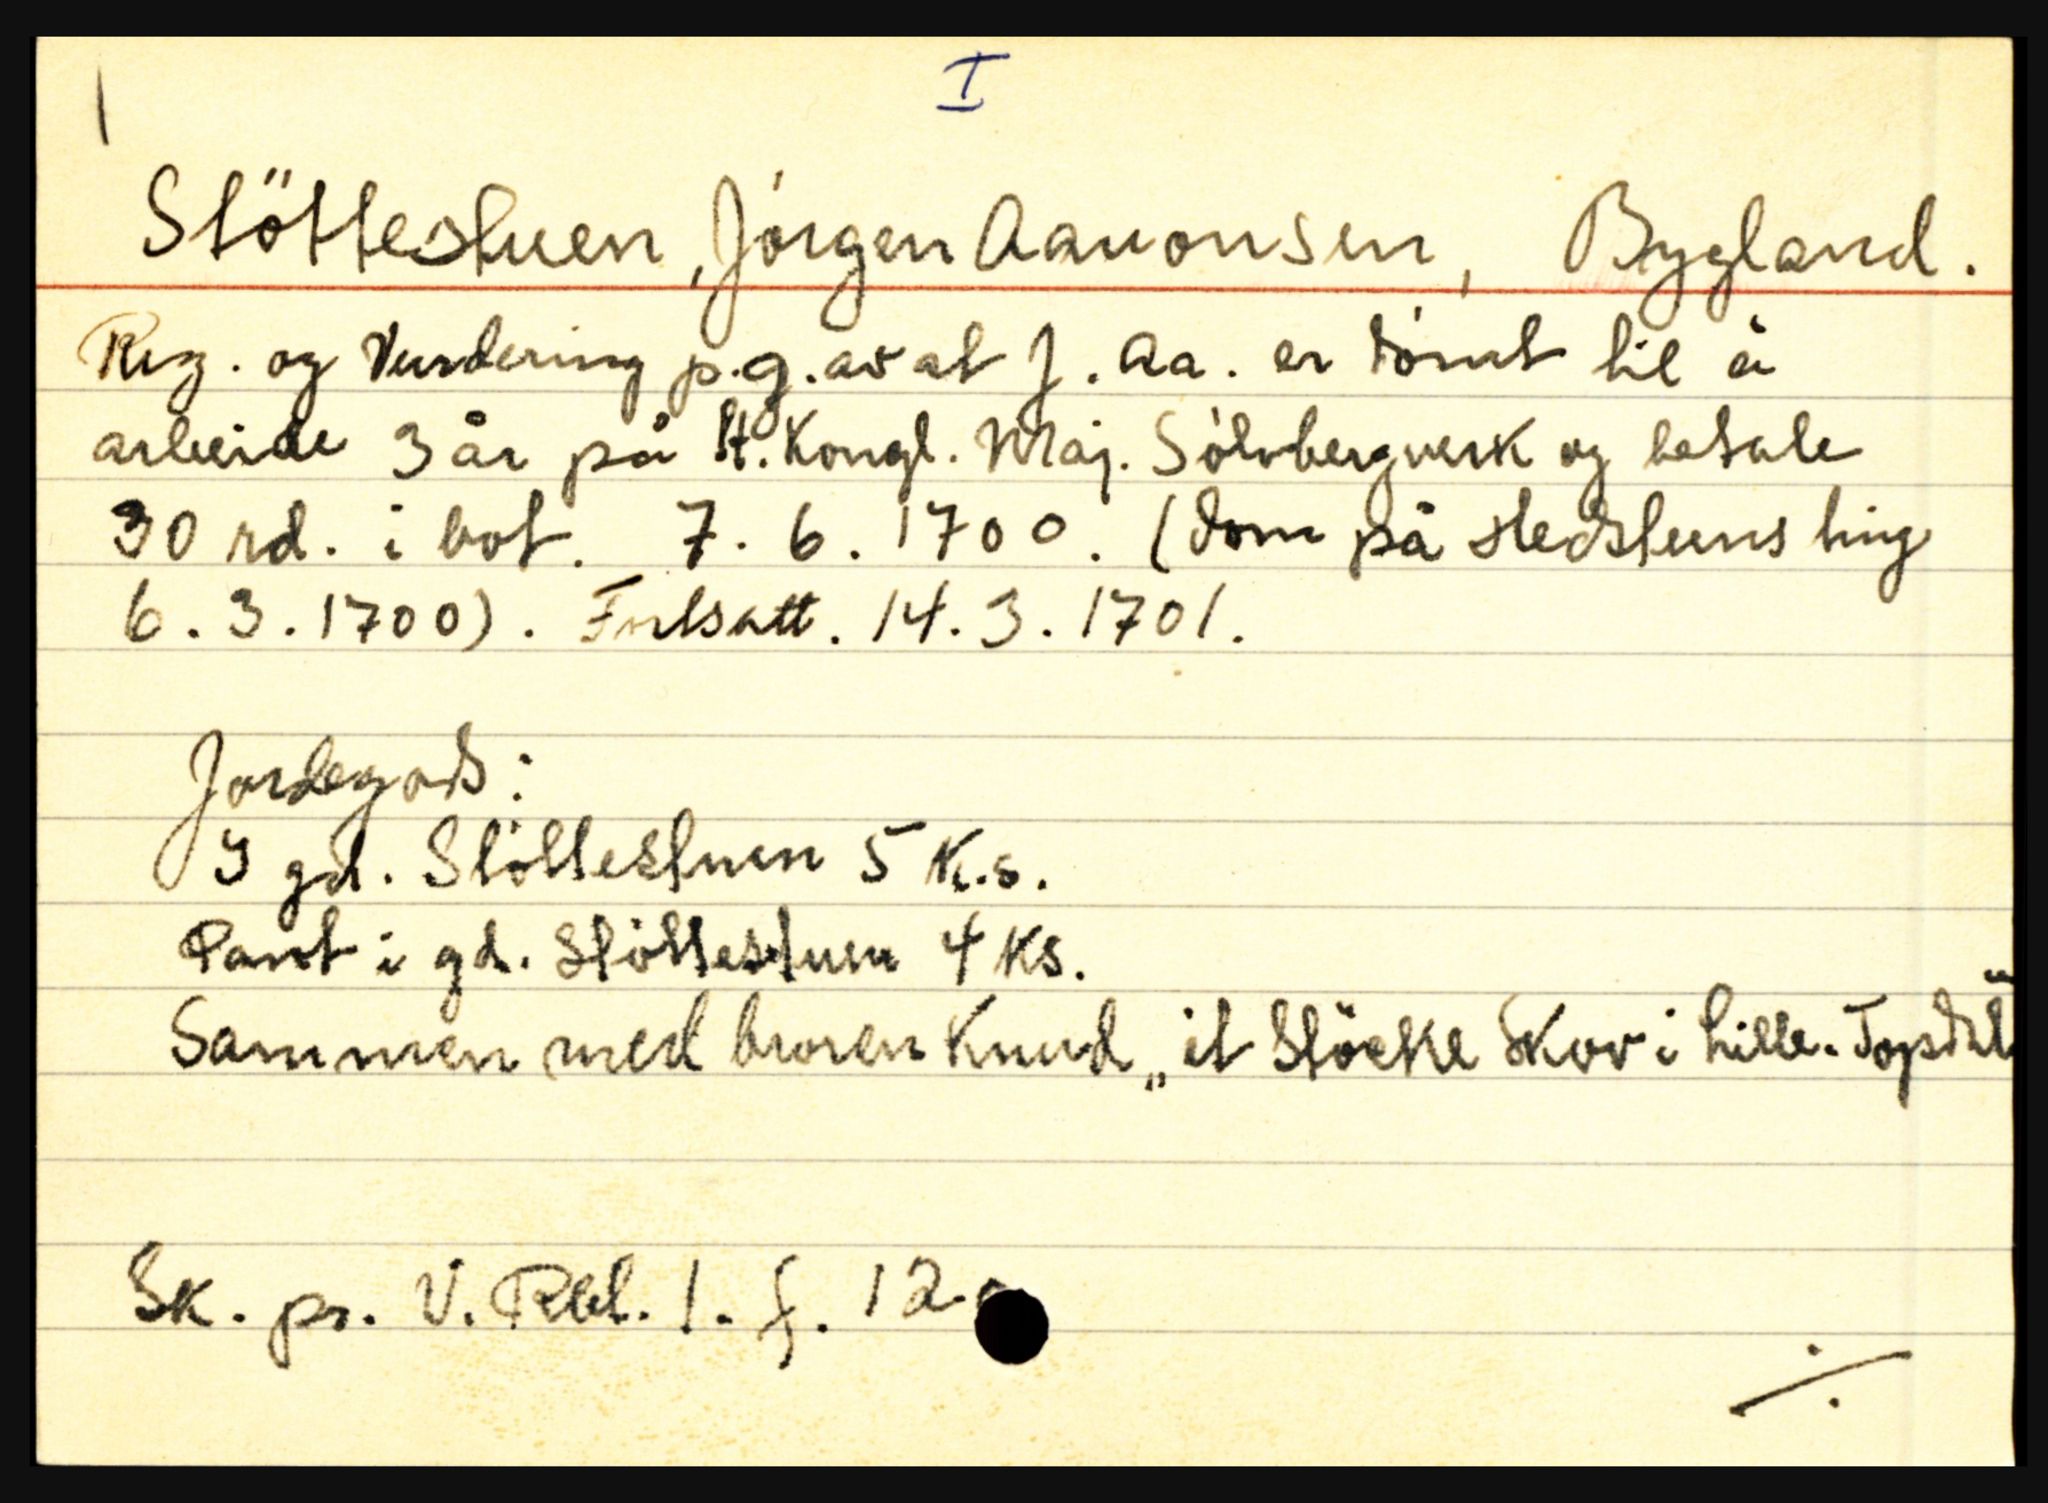 I
Stöttestuen, Jörgen Aamonsen, Bygland.
Reg. og Vurdering p.g.av at J. Aa. er dömt til å
arbeide 3 år på H. Kongl. Maj. Sölvbergverk og betale
30 rd. i bot. 7. 6. 1700. (dom på stedstuens ting
6. 3. 1700). Fortsatt. 14. 3. 1701.
Jordegods:
I gd. Stöttestuen 5 K.s.
Pant i gd. Stöttestuen 4 Ks.
Sammen med broren Knud „it Stöcke Skov i Lille-Topdal"
Sk. pr. V. Rbl. 1. f. 12.